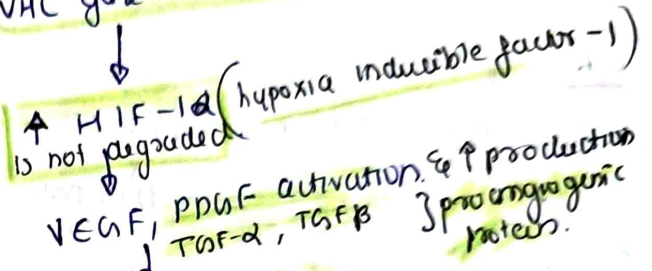 VHC
↑ HIF-1α (hypoxia inducible factor-1)
is not degraded
VEGF, PDGF activation & ↑ production
TGF-α, TGFβ } proangiogenic
protein.